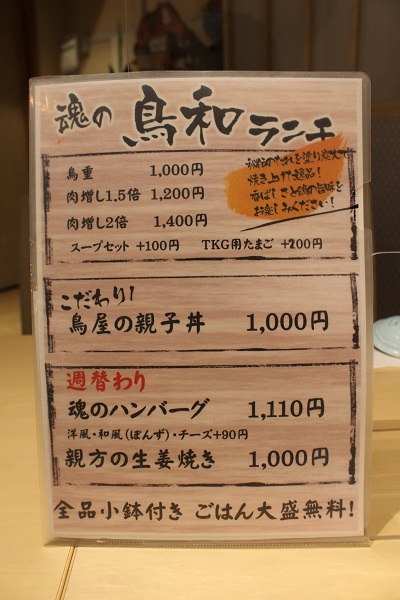 魂の鳥和ランチ
鳥重 1,000円
肉増し1.5倍 1,200円
肉増し2倍 1,400円
秘伝のたれを塗り炭火で
焼き上げ逸品！
香ばしさと鶏の旨味を
お楽しみください！
スープセット +100円 TKG用たまご +200円
こだわり！
鳥屋の親子丼 1,000円
週替わり
魂のハンバーグ 1,110円
洋風・和風(ぽんず)・チーズ+90円
親方の生姜焼き 1,000円
全品小鉢付き ごはん大盛無料!